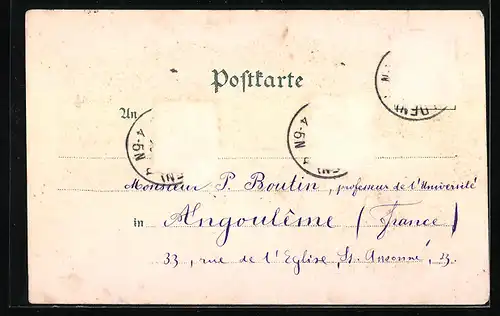 Postkarte
An
4-5N
4-5N
Monsieur P. Boutin, professeur de l'Université
in Angoulême (France)
33, rue de l'Eglise, St. Ausonne, 33.